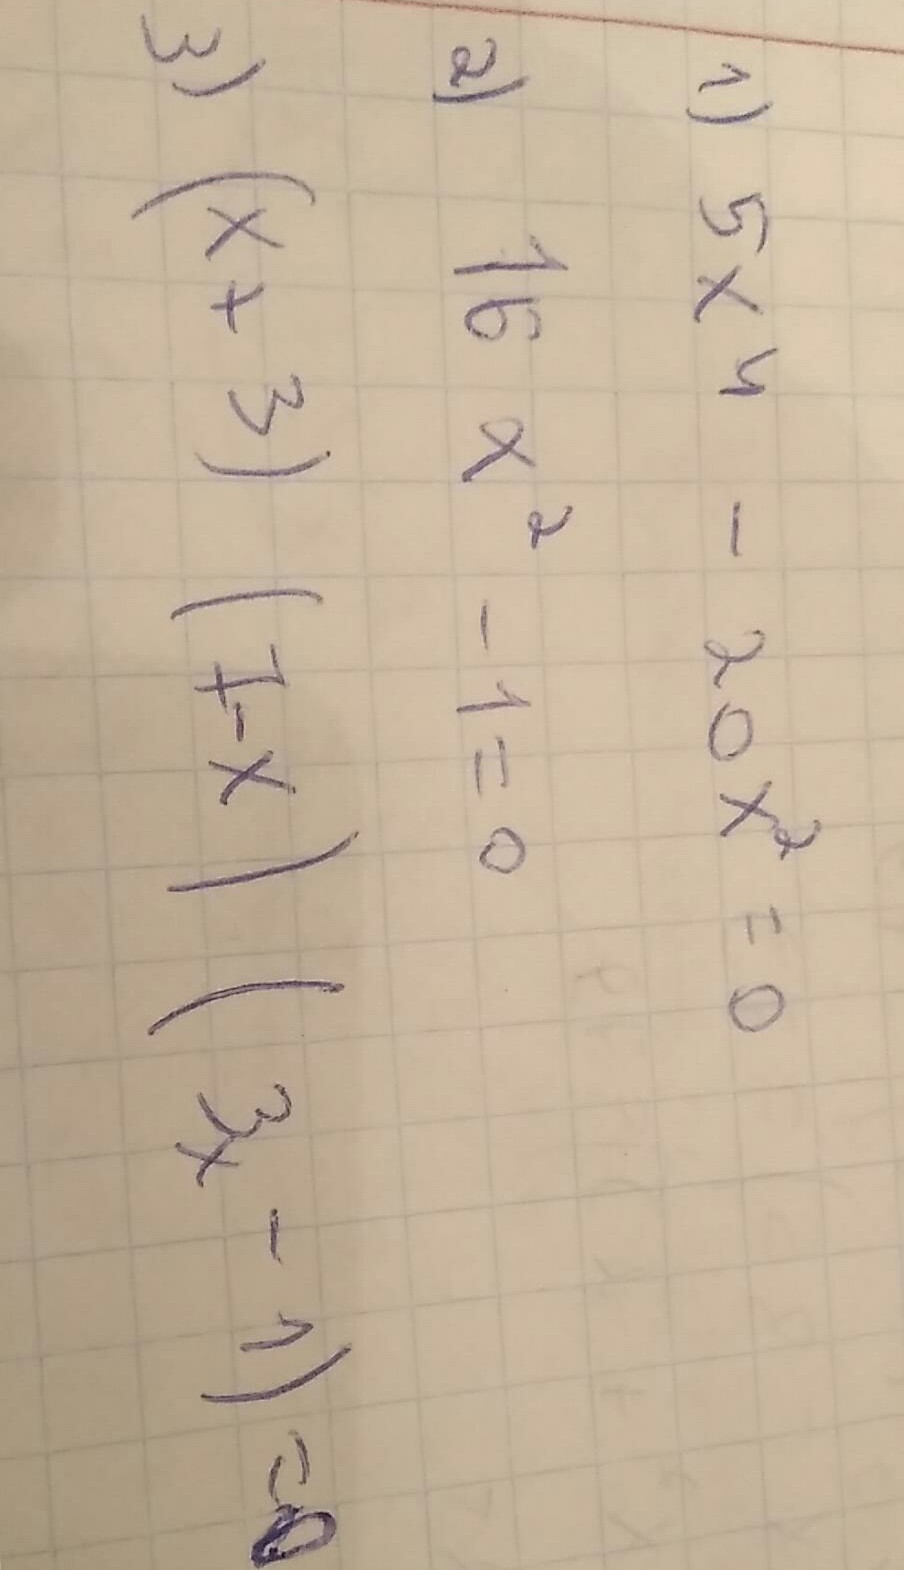 1) 5x⁴ - 20x² = 0
2) 16x² - 1 = 0
3) (x + 3) (7 - x) (3x - 1) = 0